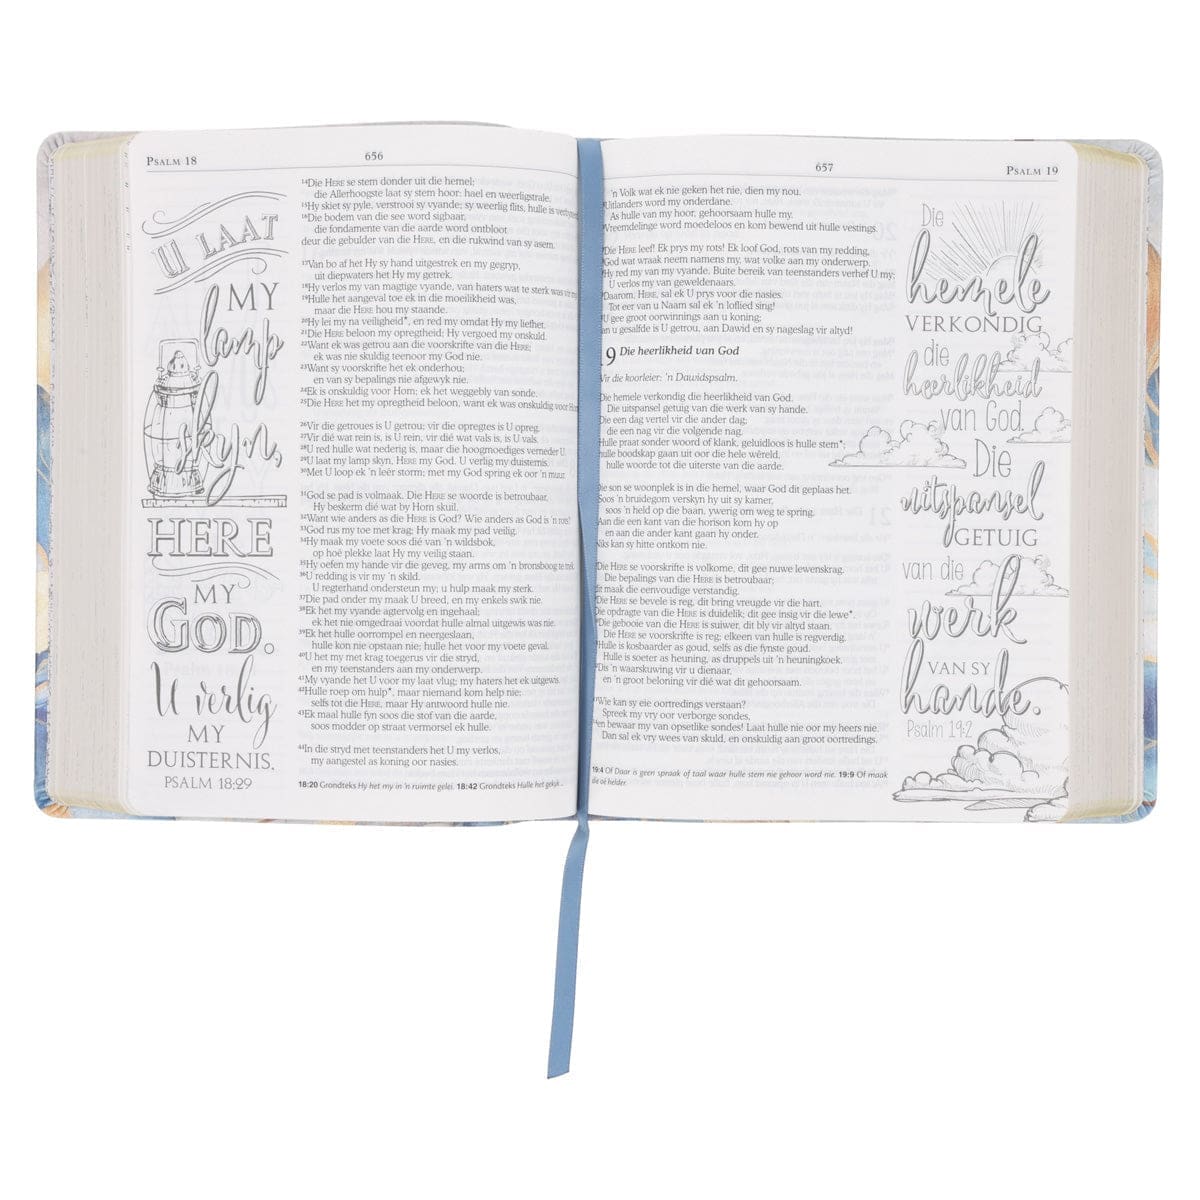 PSALM 18
656
U LAAT
MY
lamp
skyn,
HERE
MY
GOD.
U verlig
MY
DUISTERNIS.
PSALM 18:29
14Die HERE se stem donder uit die hemel;
die Allerhoogste laat sy stem hoor: hael en weerligstrale.
15Hy skiet sy pyle, verstrooi sy vyande; sy weerlig flits, hulle is
16Die bodem van die see word sigbaar,
die fondamente van die aarde word ontbloot
deur die gebulder van die HERE, en die rukwind van sy asem.
17Van bo af het Hy sy hand uitgestrek en my gegryp,
uit diepwaters het Hy my getrek.
18Hy verlos my van magtige vyande, van haters wat te sterk was vir my.
19Hulle het aangeval toe ek in die moeilikheid was,
maar die HERE hou my staande.
20Hy lei my na veiligheid*, en red my omdat Hy my liefhet.
21Die HERE beloon my opregtheid; Hy vergoed my onskuld.
22Want ek was getrou aan die voorskrifte van die HERE;
ek was nie skuldig teenoor my God nie.
23Want sy voorskrifte het ek onderhou;
en van sy bepalings nie afgewyk nie.
24Ek is onskuldig voor Hom; ek het weggebly van sonde.
25Die HERE het my opregtheid beloon, want ek was onskuldig voor Hom
26Vir die getroues is U getrou; vir die opregtes is U opreg.
27Vir dié wat rein is, is U rein, vir dié wat vals is, is U vals.
28U red hulle wat nederig is, maar die hoogmoediges verneder U.
29U laat my lamp skyn, HERE my God. U verlig my duisternis.
30Met U loop ek 'n leër storm; met my God spring ek oor 'n muur.
31God se pad is volmaak. Die HERE se woorde is betroubaar,
Hy beskerm dié wat by Hom skuil.
32Want wie anders as die HERE is God? Wie anders as God is 'n rots!
33God rus my toe met krag; Hy maak my pad veilig.
34Hy maak my voete soos dié van 'n wildsbok,
op hoë plekke laat Hy my veilig staan.
35Hy oefen my hande vir die geveg, my arms om 'n bronsboog te trek.
36U redding is vir my 'n skild.
U regterhand ondersteun my; u hulp maak my sterk.
37Die pad onder my maak U breed, en my enkels swik nie.
38Ek het my vyande agtervolg en ingehaal;
ek het nie omgedraai voordat hulle almal uitgewis was nie.
39Ek het hulle oorrompel en neergeslaan,
hulle kon nie opstaan nie; hulle het voor my voete geval.
40U het my met krag toegerus vir die stryd,
en my teenstanders aan my onderwerp.
41My vyande het U voor my laat vlug; my haters het ek uitgewis.
42Hulle roep om hulp*, maar niemand kom help nie;
selfs tot die HERE, maar Hy antwoord hulle nie.
43Ek maal hulle fyn soos die stof van die aarde,
soos modder op straat vermorsel ek hulle.
44In die stryd met teenstanders het U my verlos,
my aangestel as koning oor nasies.
18:20 Grondteks Hy het my in 'n ruimte gelei. 18:42 Grondteks Hulle het gekyk ...
657
PSALM 19
'n Volk wat ek nie geken het nie, dien my nou.
Uitlanders word my onderdane.
As hulle van my hoor, gehoorsaam hulle my.
Vreemdelinge word moedeloos en kom bewend uit hulle vestings.
Die HERE leef! Ek prys my rots! Ek loof God, rots van my redding,
God wat wraak neem namens my, wat volke aan my onderwerp.
Hy red my van my vyande. Buite bereik van teenstanders verhef U my;
U verlos my van geweldenaars.
Daarom, HERE, sal ek U prys voor die nasies.
Tot eer van u Naam sal ek 'n loflied sing!
U gee groot oorwinnings aan u koning;
aan u gesalfde is U getrou, aan Dawid en sy nageslag vir altyd!
9 Die heerlikheid van God
Vir die koorleier: 'n Dawidspsalm.
Die hemele verkondig die heerlikheid van God.
Die uitspansel getuig van die werk van sy hande.
Die een dag vertel vir die ander dag;
die een nag vir die volgende nag.
Hulle praat sonder woord of klank, geluidloos is hulle stem*;
hulle boodskap gaan uit oor die hele wêreld,
hulle woorde tot die uiterste van die aarde.
Die son se woonplek is in die hemel, waar God dit geplaas het.
Soos 'n bruidegom verskyn hy uit sy kamer,
soos 'n held op die baan, ywerig om weg te spring.
Aan die een kant van die horison kom hy op
en aan die ander kant gaan hy onder.
Niks kan sy hitte ontkom nie.
Die HERE se voorskrifte is volkome, dit gee nuwe lewenskrag.
Die bepalings van die HERE is betroubaar;
dit maak die eenvoudige verstandig.
Die HERE se bevele is reg, dit bring vreugde vir die hart.
Die opdragte van die HERE is duidelik; dit gee insig vir die lewe*.
Die gebooie van die HERE is suiwer, dit bly vir altyd staan.
Die HERE se voorskrifte is reg; elkeen van hulle is regverdig.
Hulle is kosbaarder as goud, selfs as die fynste goud.
Hulle is soeter as heuning, as druppels uit 'n heuningkoek.
Dis 'n waarskuwing vir u dienaar,
en 'n groot beloning vir dié wat dit gehoorsaam.
Wie kan sy eie oortredings verstaan?
Spreek my vry oor verborge sondes,
en bewaar my van opsetlike sondes! Laat hulle nie oor my heers nie.
Dan sal ek vry wees van skuld, en onskuldig aan groot oortredings.
19:4 Of Daar is geen spraak of taal waar hulle stem nie gehoor word nie. 19:9 Of maak
die oë helder.
Die
hemele
VERKONDIG
die
heerlikheid
van God.
Die
uitspansel
GETUIG
van die
werk
VAN SY
hande.
Psalm 19:2